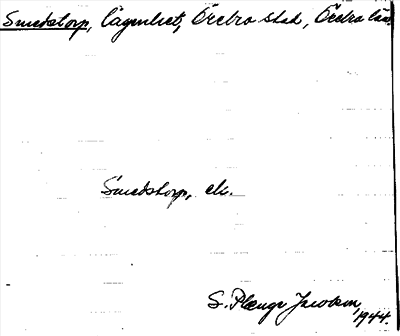 Smedstorp, Lägenhet, Örebro stad, Örebro län.
Smedstorp, ek.
S. Plænge Jacobson
1944.